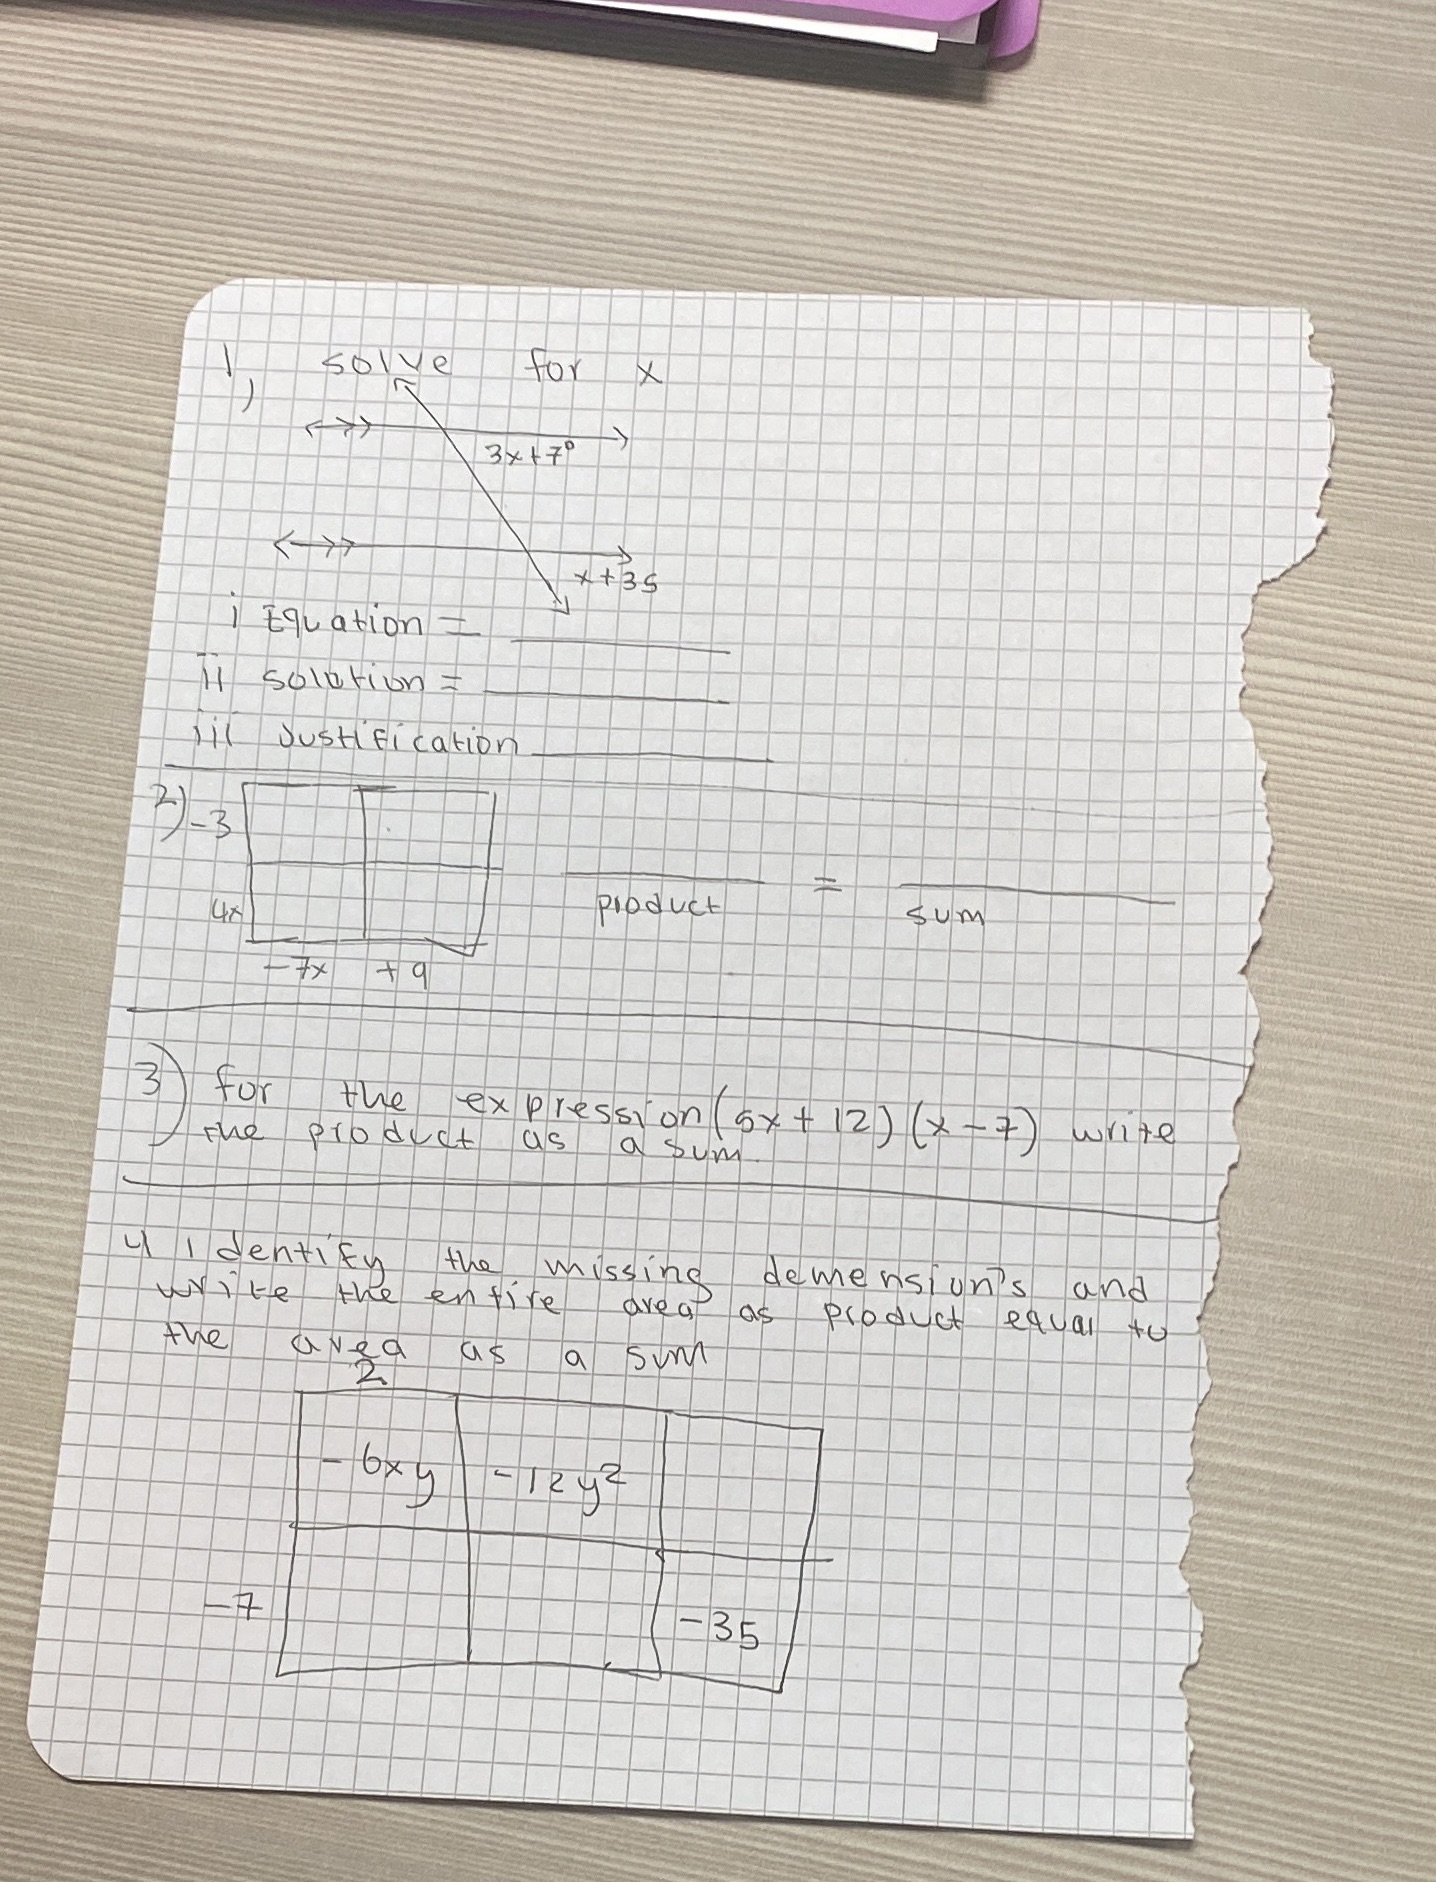 1, solve for x
3x+7°
x+35
i Equation =
ii solution =
iii Justification
2) -3
4x
-7x +9
product = sum
3) for the expression (5x+12)(x-7) write
the product as a sum.
4 identify the missing demension's and
write the entire area as product equal to
the area as a sum
2
-6xy -12y²
-7
-35